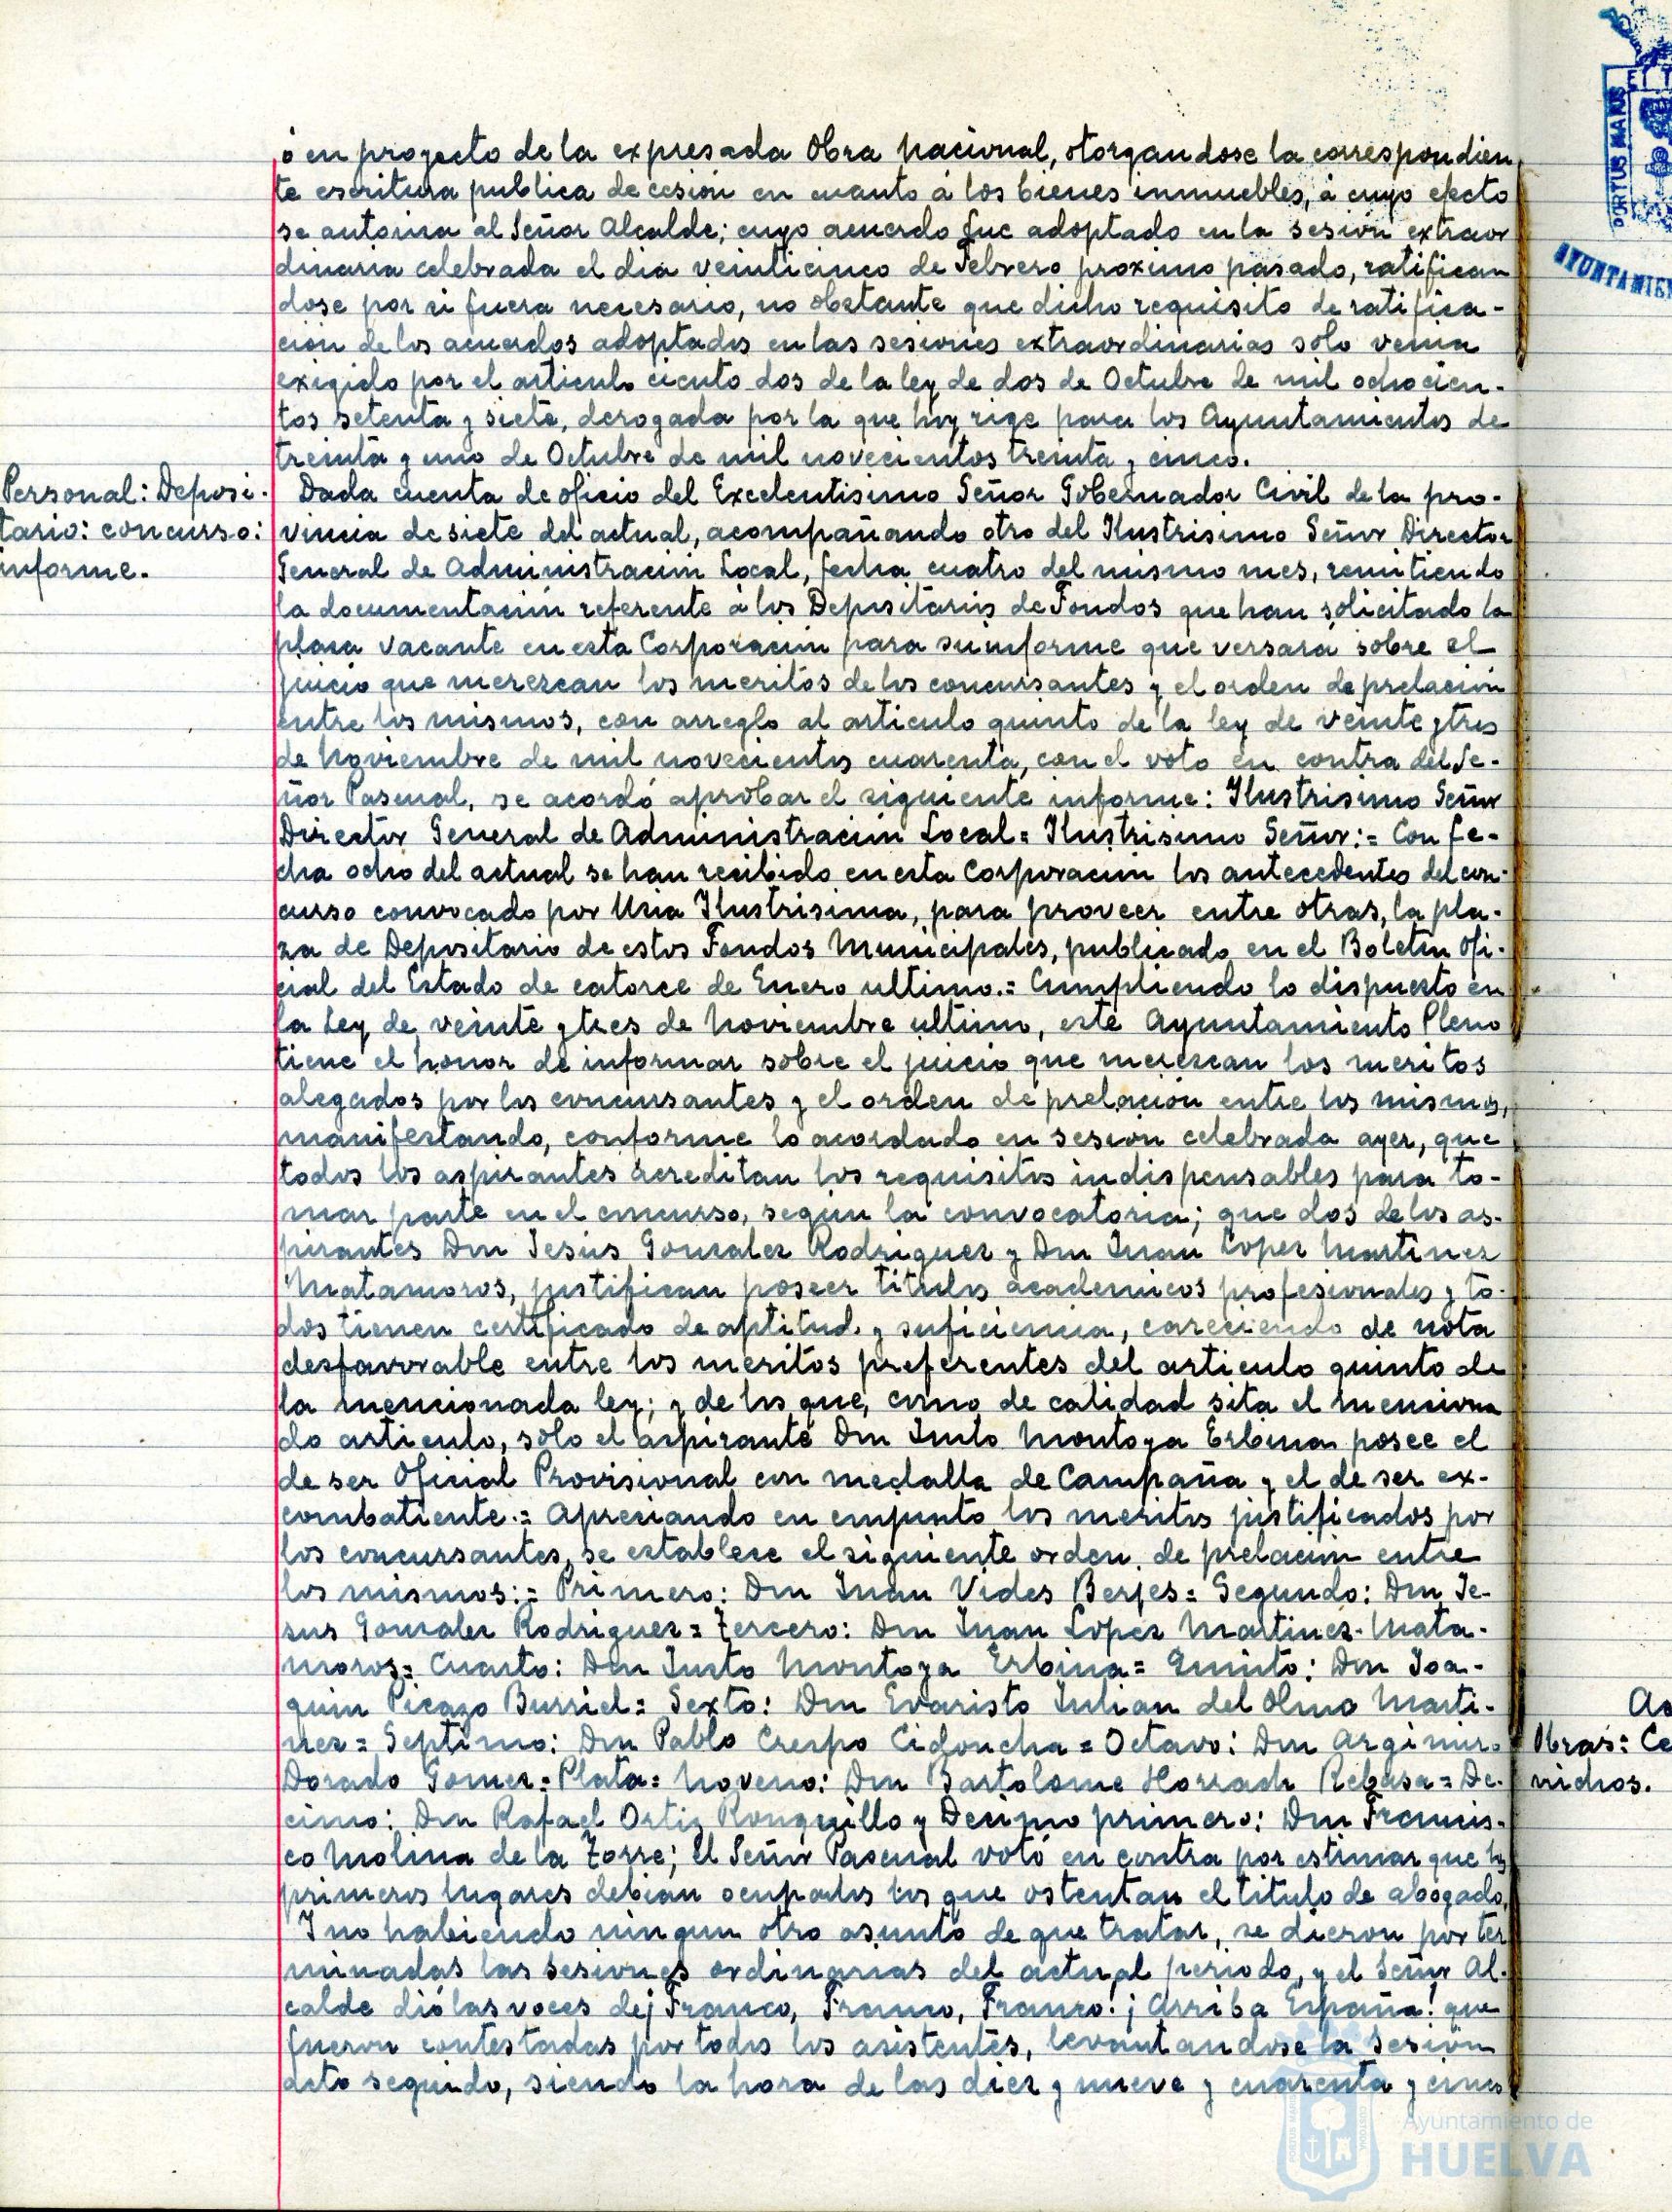 ó en proyecto de la expresada Obra Nacional, otorgandose la correspondien
te escritura publica de cesión en cuanto á los bienes inmuebles, á cuyo efecto
se autoriza al Señor Alcalde; cuyo acuerdo fue adoptado en la sesión extraor
dinaria celebrada el dia veinticinco de Febrero proximo pasado, ratifican
dose por si fuera necesario, no obstante que dicho requisito de ratifica-
ción de los acuerdos adoptados en las sesiones extraordinarias solo venia
exigido por el articulo ciento dos de la ley de dos de Octubre de mil ochocien-
tos setenta y siete, derogada por la que hoy rige para los Ayuntamientos de
treinta y uno de Octubre de mil novecientos treinta y cinco.
Personal: Deposi-
tario: concurso:
informe.
Dada cuenta de oficio del Excelentisimo Señor Gobernador Civil de la pro-
vincia de siete del actual, acompañando otro del Ilustrisimo Señor Director
General de Administración Local, fecha cuatro del mismo mes, remitiendo
la documentación referente á los Depositarios de Fondos que han solicitado la
plaza vacante en esta Corporación para su informe que versará sobre el
juicio que merezcan los meritos de los concursantes y el orden de prelación
entre los mismos, con arreglo al articulo quinto de la ley de veinte y tres
de Noviembre de mil novecientos cuarenta, con el voto en contra del Se-
ñor Pascual, se acordó aprobar el siguiente informe: Ilustrisimo Señor
Director General de Administración Local = Ilustrisimo Señor: = Con fe-
cha ocho del actual se han recibido en esta Corporación los antecedentes del con-
curso convocado por Usia Ilustrisima, para proveer entre otras, la pla-
za de Depositario de estos Fondos Municipales, publicado en el Boletin Ofi-
cial del Estado de catorce de Enero ultimo. = Cumpliendo lo dispuesto en
la Ley de veinte y tres de Noviembre ultimo, este Ayuntamiento Pleno
tiene el honor de informar sobre el juicio que merezcan los meritos
alegados por los concursantes y el orden de prelación entre los mismos,
manifestando, conforme lo acordado en sesion celebrada ayer, que
todos los aspirantes acreditan los requisitos indispensables para to-
mar parte en el concurso, según la convocatoria; que dos de los as-
pirantes Don Jesús Gonzalez Rodriguez y Don Juan Lopez Martinez
Matamoros, justifican poseer titulos academicos profesionales y to-
dos tienen certificado de aptitud y suficiencia, careciendo de nota
desfavorable entre los meritos preferentes del articulo quinto de
la mencionada ley; y de los que, como de calidad sita el menciona
do articulo, sólo el aspirante Don Justo Montoya Erbina posee el
de ser Oficial Provisional con medalla de Campaña y el de ser ex-
combatiente. = Apreciando en conjunto los meritos justificados por
los concursantes, se establece el siguiente orden de prelación entre
los mismos: = Primero: Don Juan Vides Berjes = Segundo: Don Je-
sus Gonzalez Rodriguez = Tercero: Don Juan Lopez Martinez-Mata-
moros = Cuarto: Don Justo Montoya Erbina = Quinto: Don Joa-
quin Picazo Burriel = Sexto: Don Evaristo Julian del Olmo Marti-
nez = Septimo: Don Pablo Crespo Cidoncha = Octavo: Don Argimiro
Dorado Gomez-Plata = Noveno: Don Bartolome Horrach Rebasa = De-
cimo: Don Rafael Ortiz Ronquillo y Decimo primero: Don Francis-
co Molina de la Torre; el Señor Pascual votó en contra por estimar que los
primeros lugares debian ocuparlos los que ostentan el titulo de abogado.
Y no habiendo ningun otro asunto de que tratar, se dieron por ter
minadas las sesiones ordinarias del actual periodo, y el Señor Al-
calde dió las voces de ¡Franco, Franco, Franco! ¡Arriba España! que
fueron contestadas por todos los asistentes, levantandose la sesion
acto seguido, siendo la hora de las diez y nueve y cuarenta y cinco
PORTUS MARIS
AYUNTAMIEN
Ac
Obras: Ce
nichos.
Ayuntamiento de
HUELVA